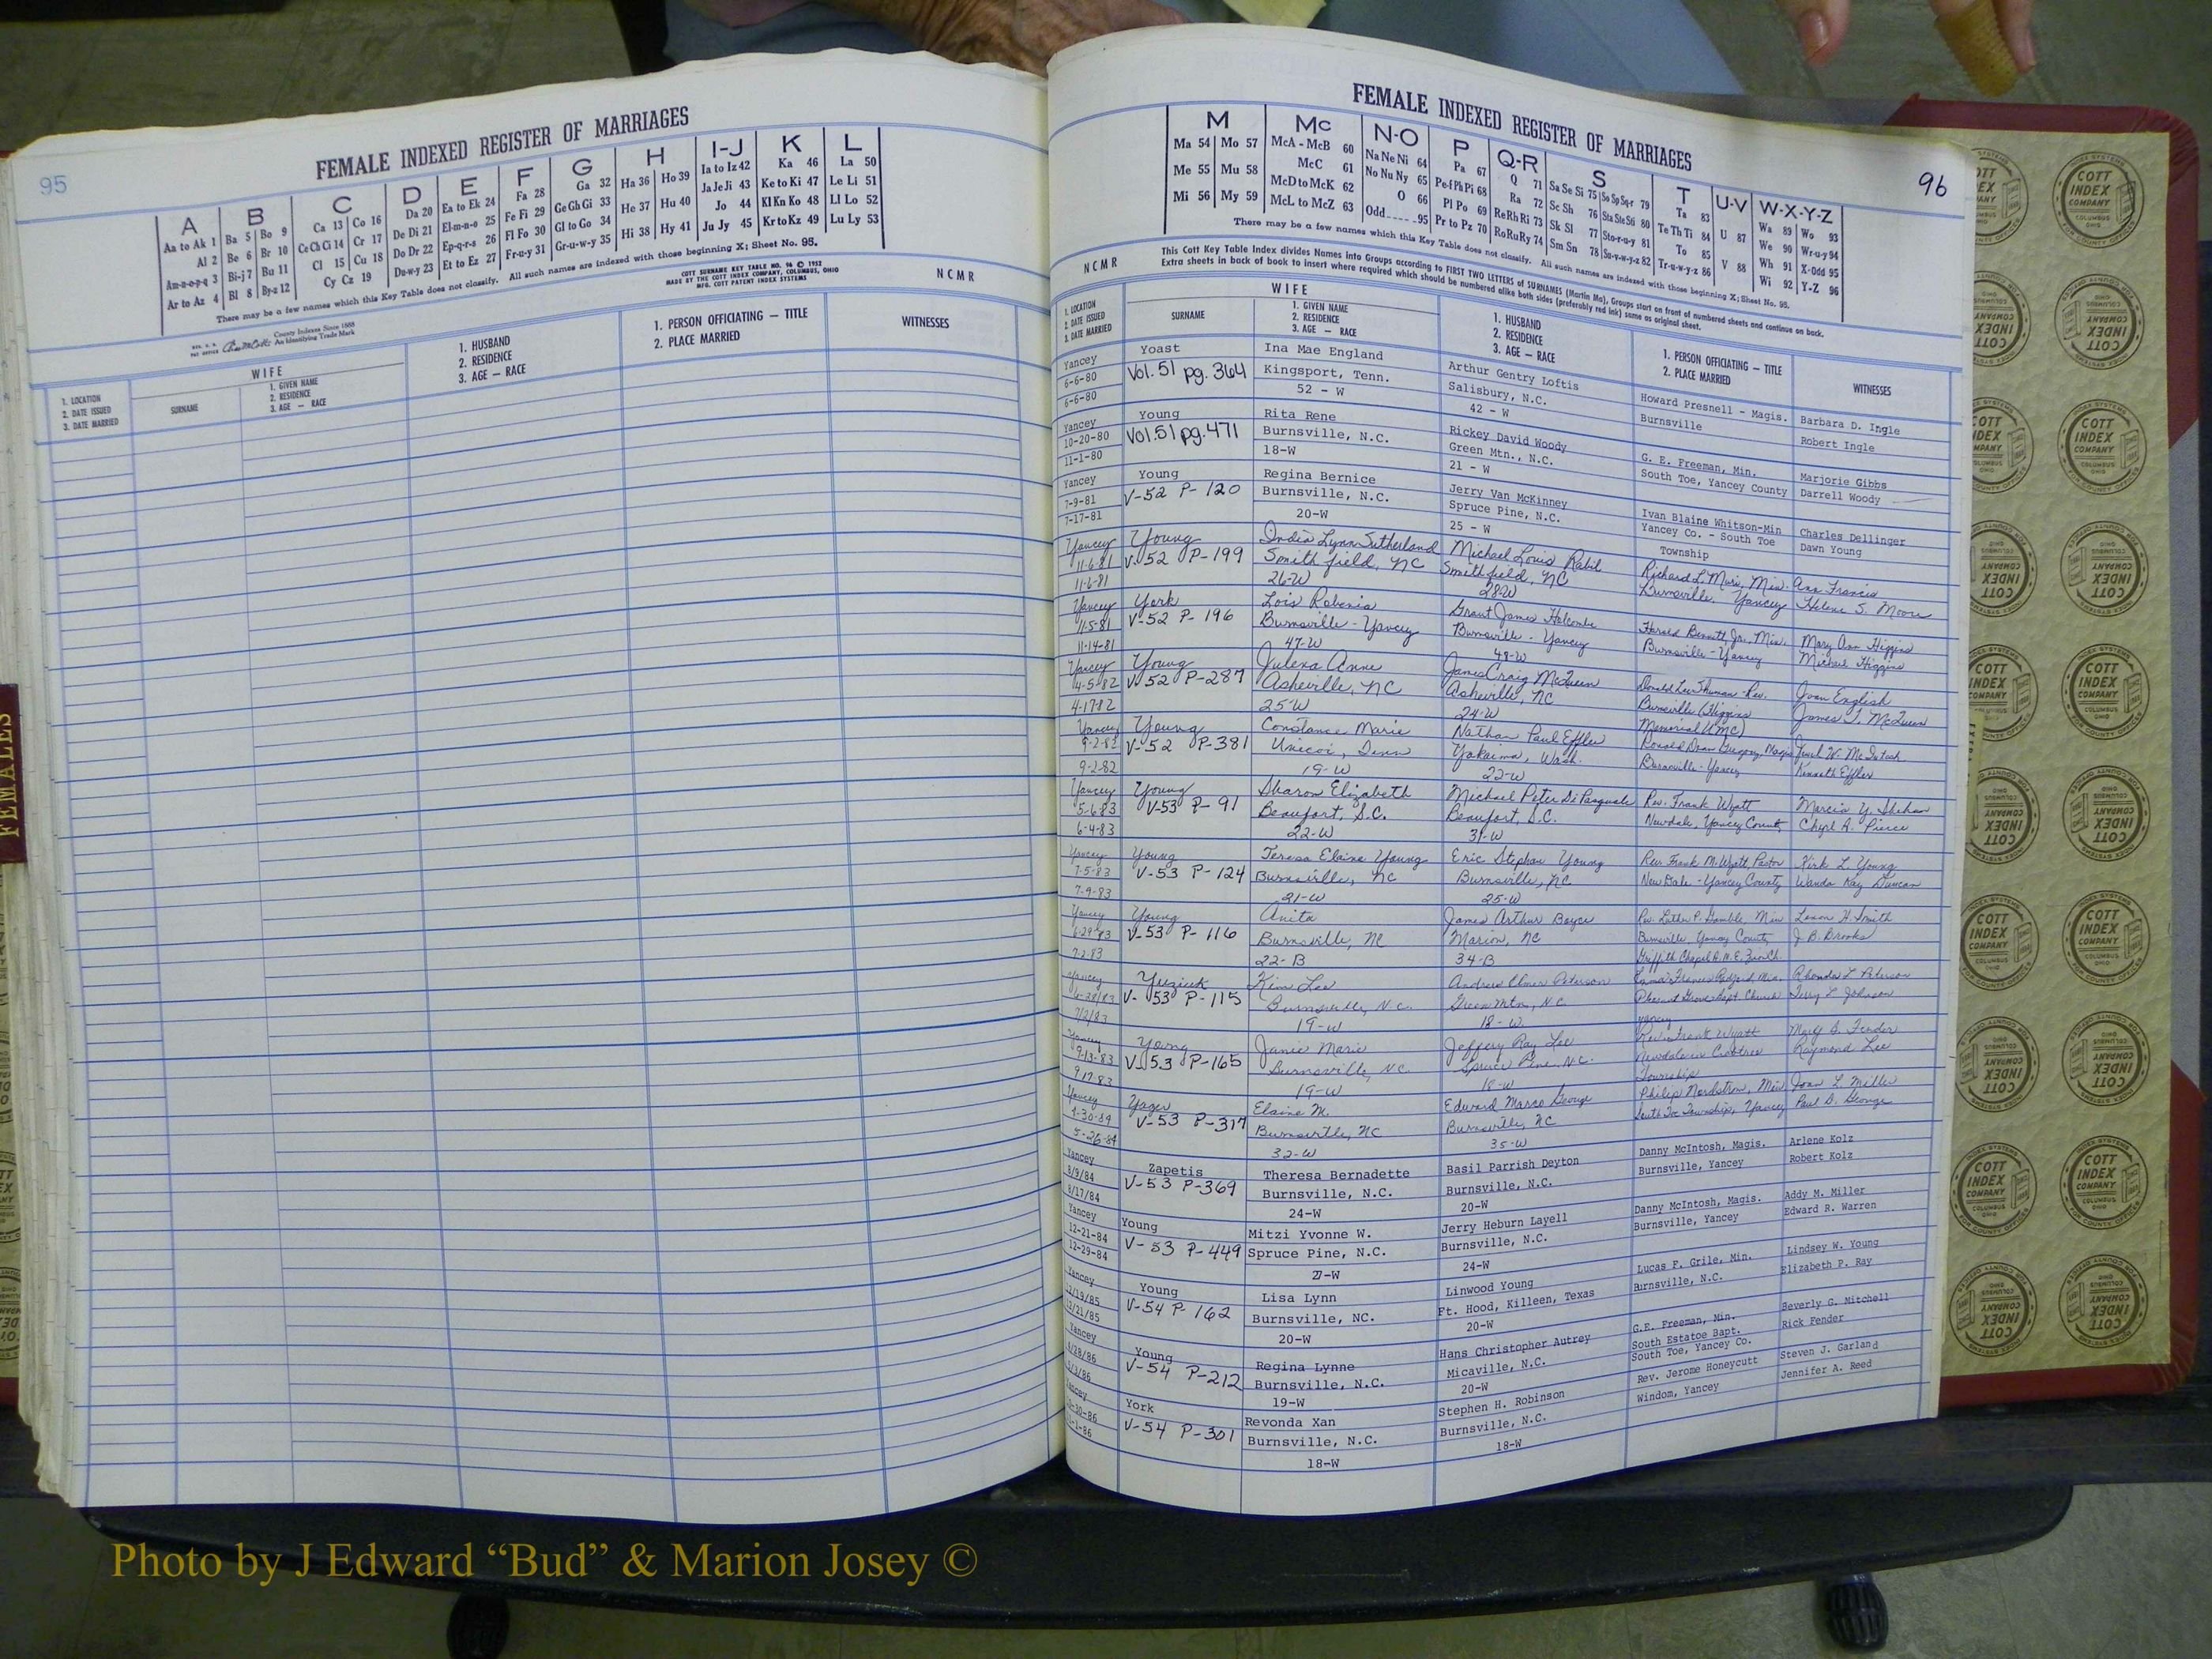 95
FEMALE INDEXED REGISTER OF MARRIAGES
A B C D E F G H I-J K L
Aa to Ak 1 Ba 5 Bo 9 Ca 13 Co 16 Da 20 Ea to Ek 24 Fa 28 Ga 32 Ha 36 Ho 39 Ia to Iz 42 Ka 46 La 50
Al 2 Be 6 Br 10 Ce Ch Ci 14 Cr 17 De Di 21 El-m-n-o 25 Fe Fi 29 Ge Gh Gi 33 He 37 Hu 40 Ja Je Ji 43 Ke to Ki 47 Le Li 51
Am-n-o-p-q 3 Bi-j 7 Bu 11 Cl 15 Cu 18 Do Dr 22 Ep-q-r-s 26 Fl Fo 30 Gl to Go 34 Hi 38 Hy 41 Jo 44 Kl Kn Ko 48 Ll Lo 52
Ar to Az 4 Bl 8 By-z 12 Cy Cz 19 Du-w-y 23 Et to Ez 27 Fr-u-y 31 Gr-u-w-y 35 Ju Jy 45 Kr to Kz 49 Lu Ly 53
There may be a few names which this Key Table does not classify. All such names are indexed with those beginning X; Sheet No. 95.
COTT SURNAME KEY TABLE NO. 96 © 1952
MADE BY THE COTT INDEX COMPANY, COLUMBUS, OHIO
MFG. COTT PATENT INDEX SYSTEMS
NCMR
County Indexes Since 1888
An Identifying Trade Mark
1. LOCATION
2. DATE ISSUED
3. DATE MARRIED
WIFE
SURNAME
1. GIVEN NAME
2. RESIDENCE
3. AGE — RACE
1. HUSBAND
2. RESIDENCE
3. AGE — RACE
1. PERSON OFFICIATING — TITLE
2. PLACE MARRIED
WITNESSES
96
FEMALE INDEXED REGISTER OF MARRIAGES
M Mc N-O P Q-R S T U-V W-X-Y-Z
Ma 54 Mo 57 McA - McB 60 Na Ne Ni 64 Pa 67 Q 71 Sa Se Si 75 So Sp Sq-r 79 Ta 83 U 87 Wa 89 Wo 93
Me 55 Mu 58 McC 61 No Nu Ny 65 Pe-f Ph Pi 68 Ra 72 Sc Sh 76 Sta Ste Sti 80 Te Th Ti 84 V 88 We 90 Wr-u-y 94
Mi 56 My 59 McD to McK 62 O 66 Pl Po 69 Re Rh Ri 73 Sk Sl 77 Sto-r-u-y 81 To 85 Wh 91 X-Odd 95
McL to McZ 63 Odd 95 Pr to Pz 70 Ro Ru Ry 74 Sm Sn 78 Su-v-w-y-z 82 Tr-u-w-y-z 86 Wi 92 Y-Z 96
There may be a few names which this Key Table does not classify. All such names are indexed with those beginning X; Sheet No. 95.
This Cott Key Table Index divides Names into Groups according to FIRST TWO LETTERS of SURNAMES (Martin Ma), Groups start on front of numbered sheets and continue on back.
Extra sheets in back of book to insert where required which should be numbered alike both sides (preferably red ink) same as original sheet.
NCMR
1. LOCATION
2. DATE ISSUED
3. DATE MARRIED
WIFE
SURNAME
1. GIVEN NAME
2. RESIDENCE
3. AGE — RACE
1. HUSBAND
2. RESIDENCE
3. AGE — RACE
1. PERSON OFFICIATING — TITLE
2. PLACE MARRIED
WITNESSES
Yancey Yoast Ina Mae England Arthur Gentry Loftis Howard Presnell - Magis. Barbara D. Ingle
6-6-80 Vol. 51 pg. 364 Kingsport, Tenn. Salisbury, N.C. Burnsville Robert Ingle
6-6-80 52 - W 42 - W
Yancey Young Rita Rene Rickey David Woody G. E. Freeman, Min. Marjorie Gibbs
10-20-80 Vol. 51 pg. 471 Burnsville, N.C. Green Mtn., N.C. South Toe, Yancey County Darrell Woody
11-1-80 18-W 21 - W
Yancey Young Regina Bernice Jerry Van McKinney Ivan Blaine Whitson-Min Charles Dellinger
7-9-81 V-52 P-120 Burnsville, N.C. Spruce Pine, N.C. Yancey Co. - South Toe Dawn Young
7-17-81 20-W 25 - W Township
Yancey Young India Lynn Sutherland Michael Louis Rabil Richard L. Min. Ann Francis
11-6-81 V-52 P-199 Smithfield, NC Smithfield, NC Burnsville, Yancey Helene S. Moore
11-6-81 26-W 28W
Yancey York Lois Robenia Grant James Holcombe Harold Bennett, Jr., Min. Mary Ann Higgins
11-5-81 V-52 P-196 Burnsville - Yancey Burnsville - Yancey Burnsville - Yancey Michael Higgins
11-14-81 47-W 48-W
Yancey Young Julena Anne James Craig McQueen Donald Lee Shuman - Rev. Joan English
4-5-82 V-52 P-287 Asheville, NC Asheville, NC Burnsville (Higgins James T. McQueen
4-17-82 25-W 24-W Memorial UMC)
Yancey Young Constance Marie Nathan Paul Effler Ronald Dean Magis W. McIntosh
9-2-82 V-52 P-381 Unicoi, Tenn Yakaima, Wash. Burnsville - Yancey Kenneth Effler
9-2-82 19-W 22-W
Yancey Young Sharon Elizabeth Michael Peter DiPasquale Rev. Frank Wyatt Marcia Y. Shehan
5-6-83 V-53 P-91 Beaufort, S.C. Beaufort, S.C. Newdale, Yancey County Chyrl A. Pierce
6-4-83 22-W 31-W
Yancey Young Teresa Elaine Young Eric Stephan Young Rev. Frank M. Wyatt, Pastor Kirk L. Young
7-5-83 V-53 P-124 Burnsville, NC Burnsville, NC New Dale - Yancey County Wanda Kay Duncan
7-9-83 21-W 25-W
Yancey Young Anita James Arthur Boyce Rev. Luther P. Gamble, Min Smith
6-29-83 V-53 P-116 Burnsville, NC Marion, NC Burnsville, Yancey County J. B. Brooks
7-2-83 22-B 34-B Griffith Chapel A.M.E. Zion Ch.
Yancey Yuziuk Kim Lee Andrew Elmer Peterson Rhonda L. Peterson
6-28/83 V-53 P-115 Burnsville, N.C. Green Mtn., N.C. Pleasant Grove Bapt. Church Terry L. Johnson
7/2/83 19-W 18-W. Yancey
Yancey Young Janie Marie Jeffery Ray Lee Rev. Frank Wyatt Mary B. Fender
9-13-83 V-53 P-165 Burnsville, NC Spruce Pine, N.C. Newdale in Crabtree Raymond Lee
9-17-83 19-W 18-W Township
Yancey Yager Elaine M. Edward Marco George Philip Nordstrom, Min Joan L. Miller
4-30-84 V-53 P-317 Burnsville, NC Burnsville, NC South Toe Township, Yancey Paul D. George
5-26-84 32-W 35-W
Yancey Zapetis Theresa Bernadette Basil Parrish Deyton Danny McIntosh, Magis. Arlene Kolz
8/9/84 V-53 P-369 Burnsville, N.C. Burnsville, N.C. Burnsville, Yancey Robert Kolz
8/17/84 24-W 20-W
Yancey Young Mitzi Yvonne W. Jerry Heburn Layell Danny McIntosh, Magis. Addy M. Miller
12-21-84 V-53 P-449 Spruce Pine, N.C. Burnsville, N.C. Burnsville, Yancey Edward R. Warren
12-29-84 27-W 24-W
Yancey Young Lisa Lynn Linwood Young Lucas F. Grile, Min. Lindsey W. Young
12/19/85 V-54 P-162 Burnsville, NC. Ft. Hood, Killeen, Texas Burnsville, N.C. Elizabeth P. Ray
12/21/85 20-W 20-W
Yancey Young Regina Lynne Hans Christopher Autrey G.E. Freeman, Min. Beverly G. Mitchell
/28/86 V-54 P-212 Burnsville, N.C. Micaville, N.C. South Estatoe Bapt. Rick Fender
/3/86 19-W 20-W South Toe, Yancey Co.
Yancey York Revonda Xan Stephen H. Robinson Rev. Jerome Honeycutt Steven J. Garland
-30-86 V-54 P-301 Burnsville, N.C. Burnsville, N.C. Windom, Yancey Jennifer A. Reed
-1-86 18-W 18-W
FEMALES
COTT INDEX COMPANY
COLUMBUS OHIO
FOR COUNTY OFFICES
Photo by J Edward “Bud” & Marion Josey ©